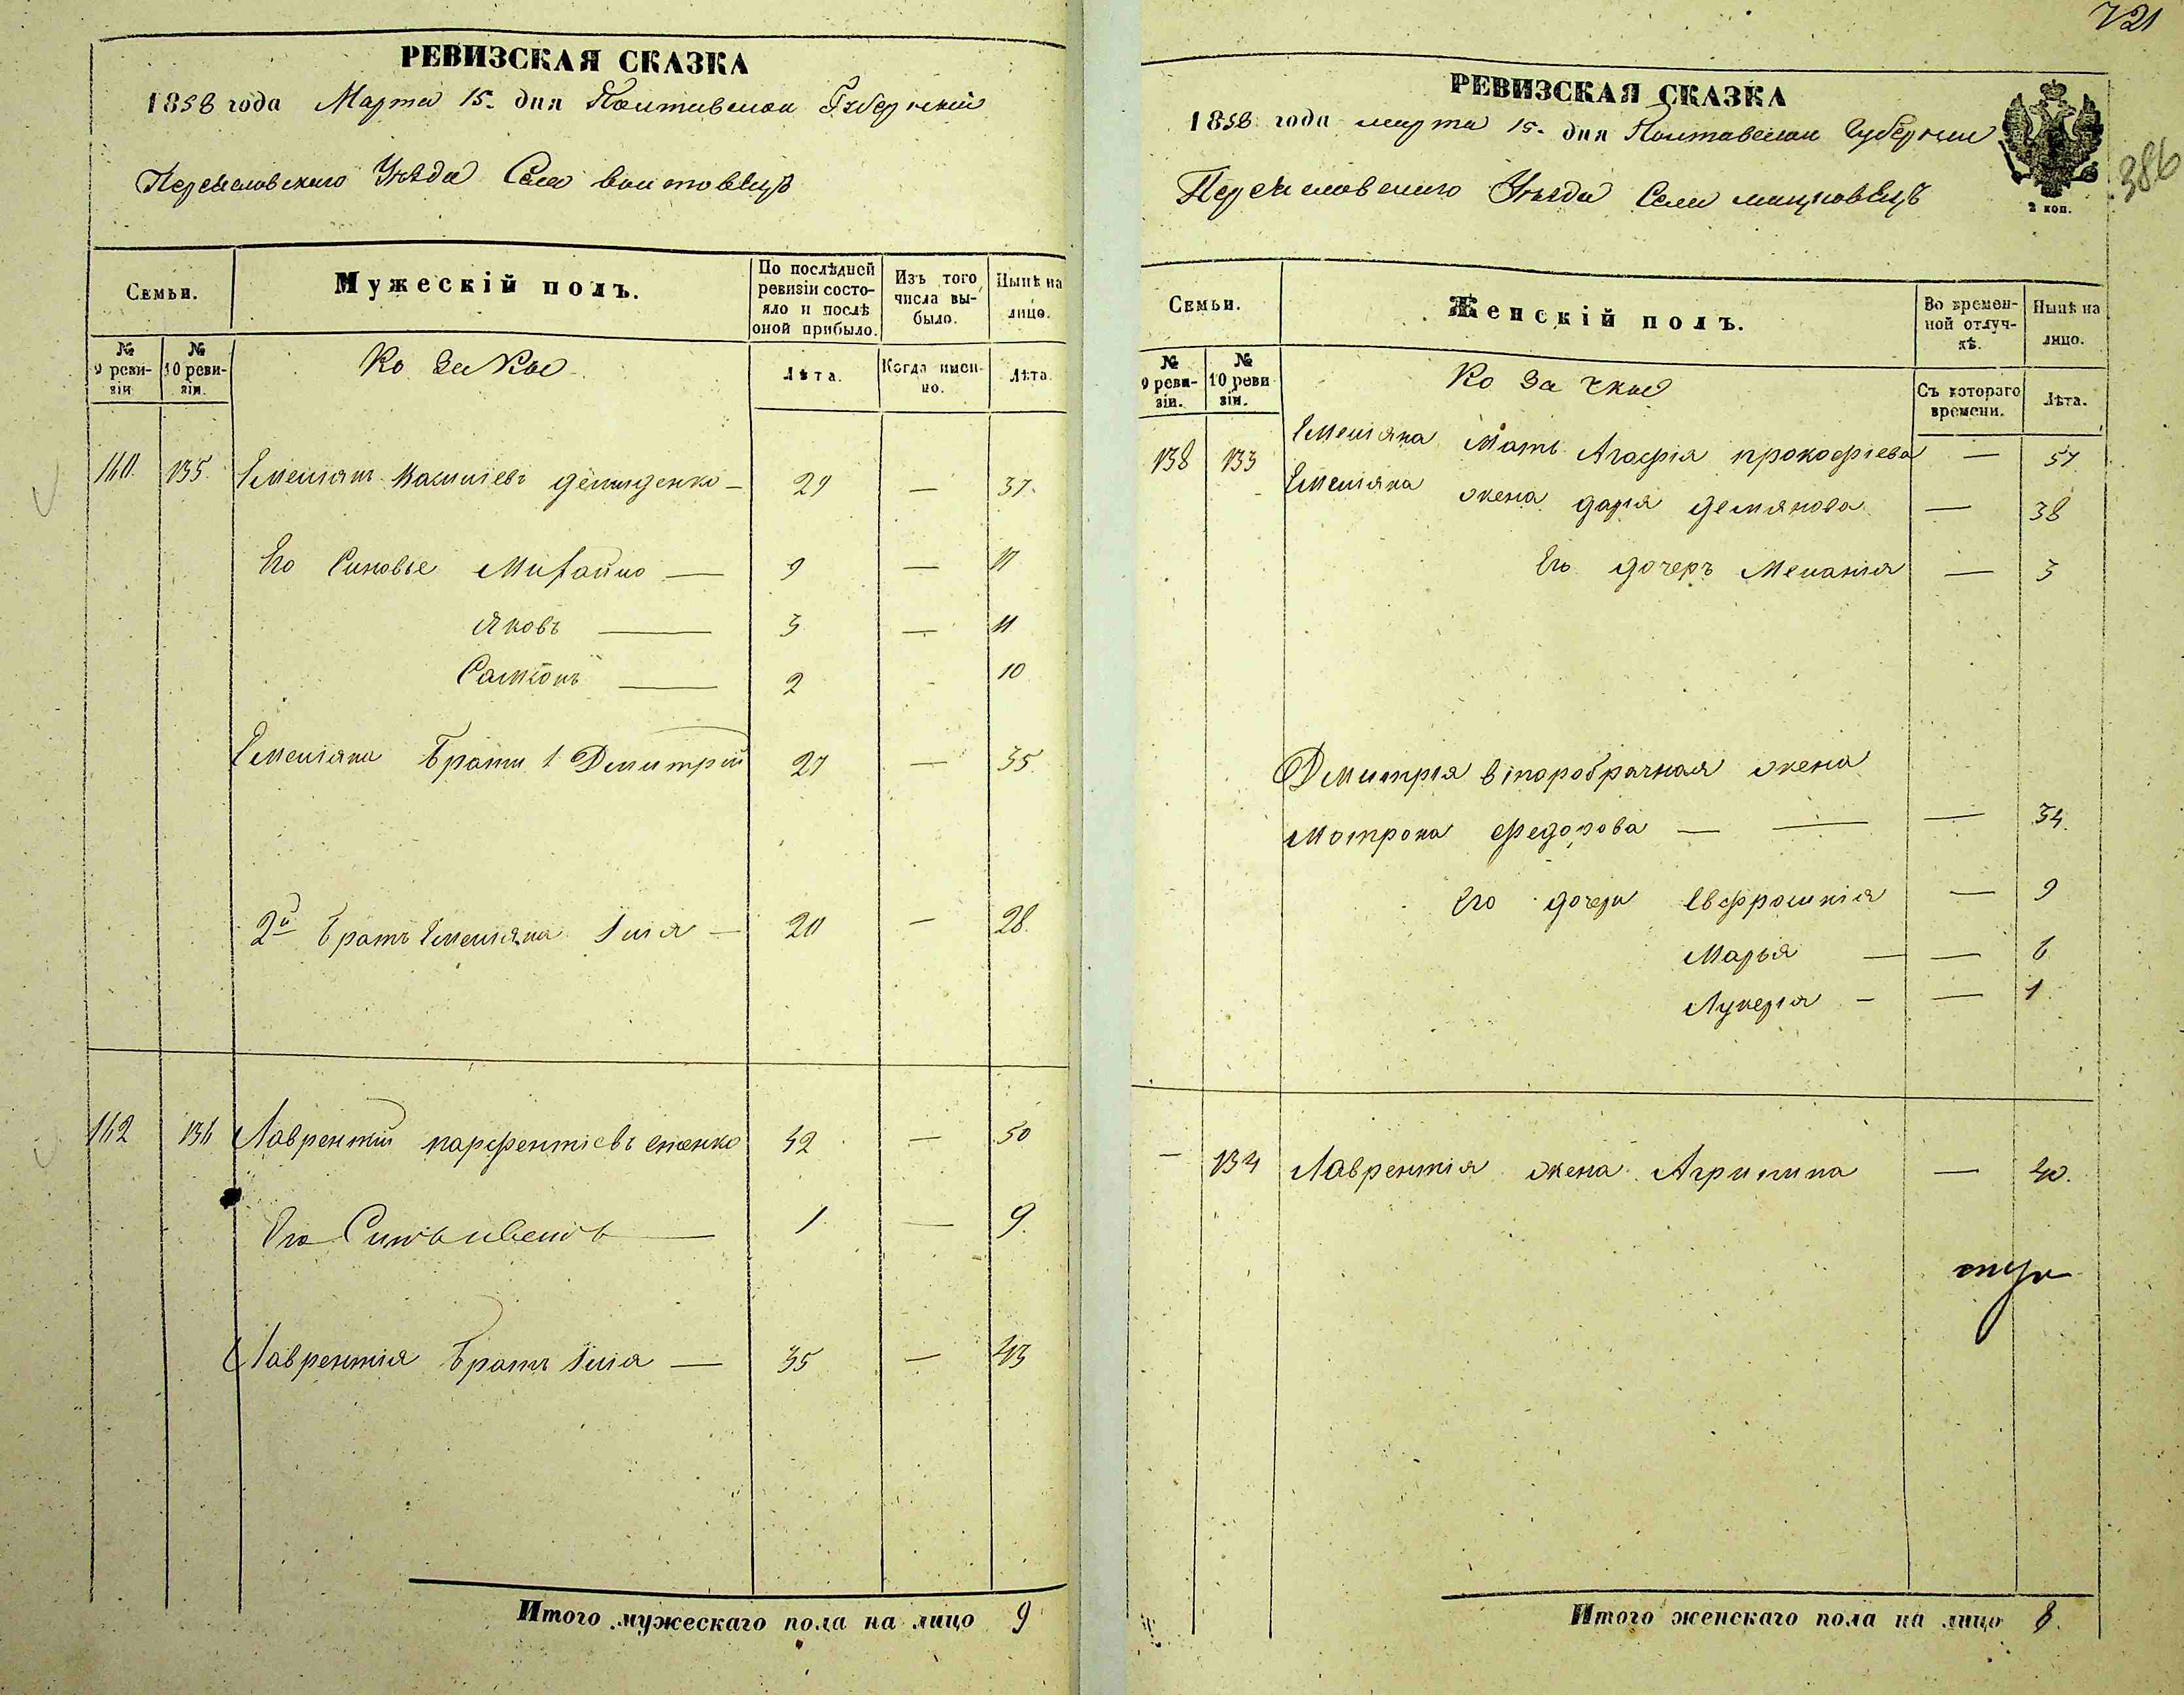 РЕВИЗСКАЯ СКАЗКА
1858 года Марта 15. дня Полтавской Губернии
Переяславскаго Уѣзда Села Войтовецъ
Семьи.
Мужескій полъ.
По послѣдней ревизіи состояло и послѣ оной прибыло.
Изъ того числа выбыло.
Нынѣ на лицо.
№ 9 ревизіи
№ 10 ревизіи.
Козаки
Лѣта.
Когда именно.
Лѣта.
140. 135. Емеліянъ Василіевъ Демиденко — 29 — 37.
Его Синовье Михайло — 9 — 17
Яковъ — 3 — 11
Самсонъ — 2 - 10
Емеліяна Братья 1 Дмитрій 27 — 35.
2й Братъ Емеліяна Илія — 20 — 28.
142 136 Лаврентій Парфентіевъ 42 — 50
Его Синъ — 1 — 9.
Лаврентія Братъ Илія — 35 — 43
Итого мужескаго пола на лицо 9
721
РЕВИЗСКАЯ СКАЗКА
1858 года марта 15. дня Полтавской Губернии
Переяславскаго Уѣзда Села
2 коп.
386
Семьи.
Женскій полъ.
Во временной отлучкѣ.
Нынѣ на лицо.
№ 9 ревизіи.
№ 10 ревизіи.
Козачки
Съ котораго времени.
Лѣта.
138 133 Емеліяна Мать Агафія Прокофіева — 57
Емеліяна жена Дарія Демянова — 38
Его дочеръ Меланія — 3
Дмитрія второбрачная жена
Мотрона Федорова — — — 34.
Его дочери Евфросинія — 9
Марья — — 6
Лукерія — — 1.
— 134 Лаврентія жена Агрипина — 40.
Итого женскаго пола на лицо 8.